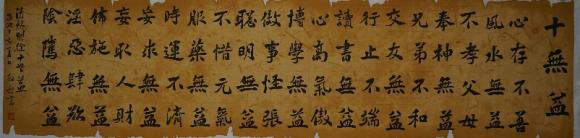 十無益
心存不善
風水無益
不孝父母
奉神無益
兄弟不和
交友無益
行止不端
讀書無益
心高氣傲
博學無益
做事怪張
聰明無益
不惜元氣
服藥無益
時運不濟
妄求無益
妄取人財
佈施無益
淫惡肆欲
陰騭無益
清林則徐十無益